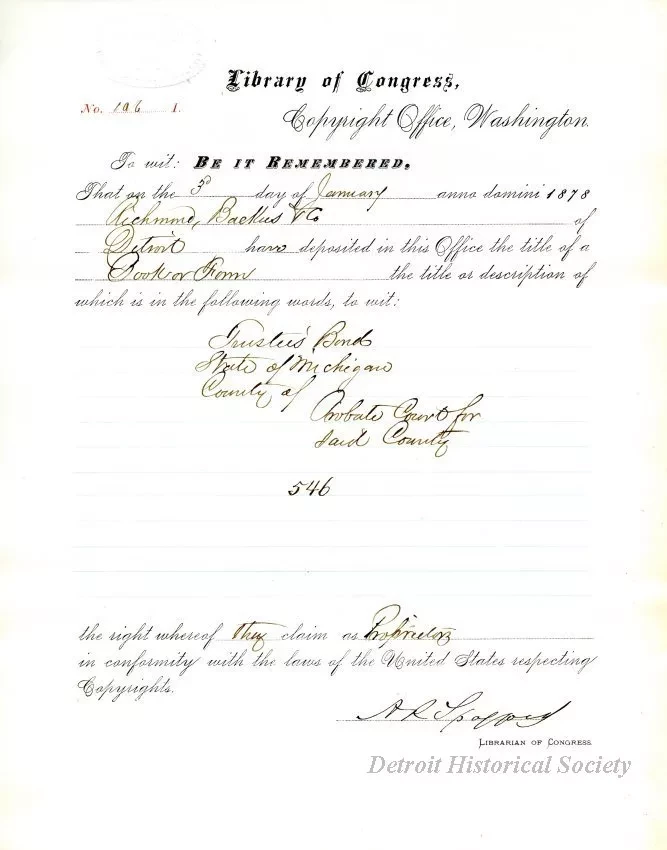 Library of Congress,
No. 196 I.
Copyright Office, Washington.
To wit: BE IT REMEMBERED,
That on the 3d day of January anno domini 1878
Richmond, Backus & Co of
Detroit have deposited in this Office the title of a
Book or Form the title or description of
which is in the following words, to wit:
Trustees' Bond
State of Michigan
County of
Probate Court for
said County
546
the right whereof they claim as Proprietors
in conformity with the laws of the United States respecting
Copyrights.
A R Spofford
LIBRARIAN OF CONGRESS.
Detroit Historical Society